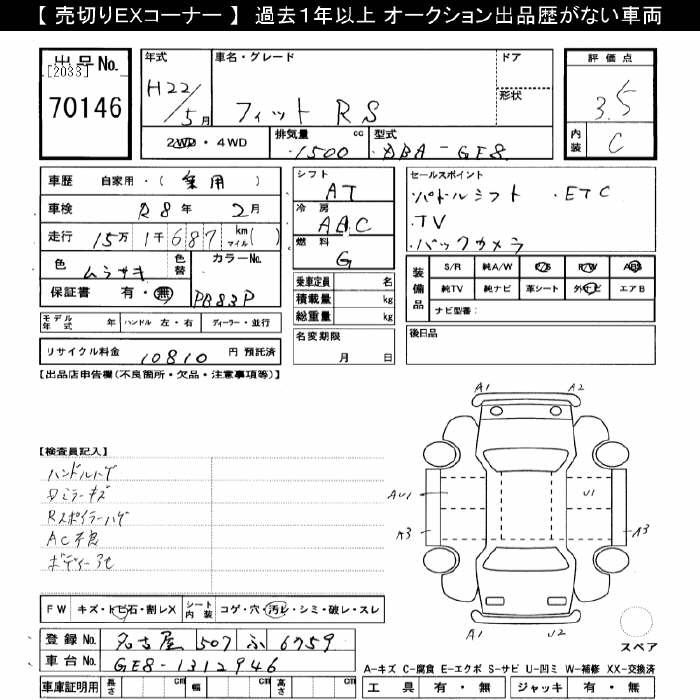 【 売切りEXコーナー 】 過去1年以上 オークション出品歴がない車両
出品No.
[2033]
70146
年式
H22/5月
車名・グレード
フィット RS
ドア
形状
2WD・4WD
排気量 cc
1500
型式
DBA-GE8
評価点
3.5
内装
C
車歴 自家用・( 乗用 )
車検 R8年 2月
走行 15万 1千 687 kmマイル( )
色 ムラサキ
色替
カラーNo.
PB83P
保証書 有・無
シフト
AT
冷房
AAC
燃料
G
乗車定員 名
積載量 kg
総重量 kg
セールスポイント
パドルシフト ・ETC
・TV
・バックカメラ
装備品
S/R 純A/W P/S P/W ABS
純TV 純ナビ 革シート 外ナビ エアB
ナビ型番:
モデル年式 年 ハンドル 左・右 ディーラー・並行
リサイクル料金 10810 円 預託済
名変期限
月 日
後日品
【出品店申告欄(不良箇所・欠品・注意事項等)】
【検査員記入】
ハンドルハゲ
Dミラーキズ
Rスポイラーハゲ
AC不良
ボディー3色
A1
A2
AU1
U1
A3
A3
A1
U2
スペア
FW キズ・トビ石・割レX
シート内装 コゲ・穴・汚レ・シミ・破レ・スレ
登録No. 名古屋 507 ふ 6759
車台No. GE8-1312946
車庫証明用 長さ cm 幅 cm 高さ cm
A-キズ C-腐食 E-エクボ S-サビ U-凹ミ W-補修 XX-交換済
工具 有・無 ジャッキ 有・無